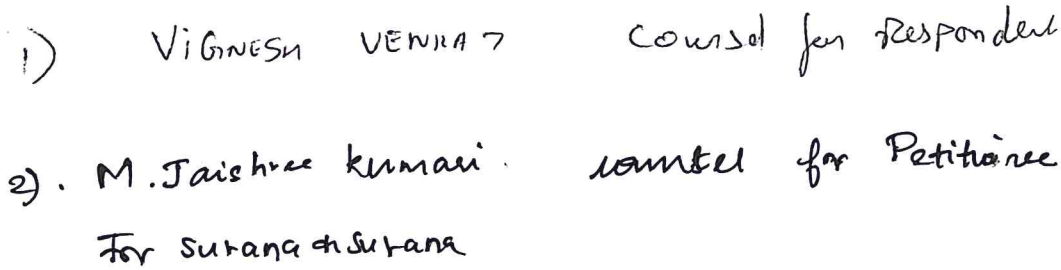 1) VIGNESH VENKAT Counsel for Respondent
2). M. Jaishree kumari. counsel for Petitioner
For surana & surana